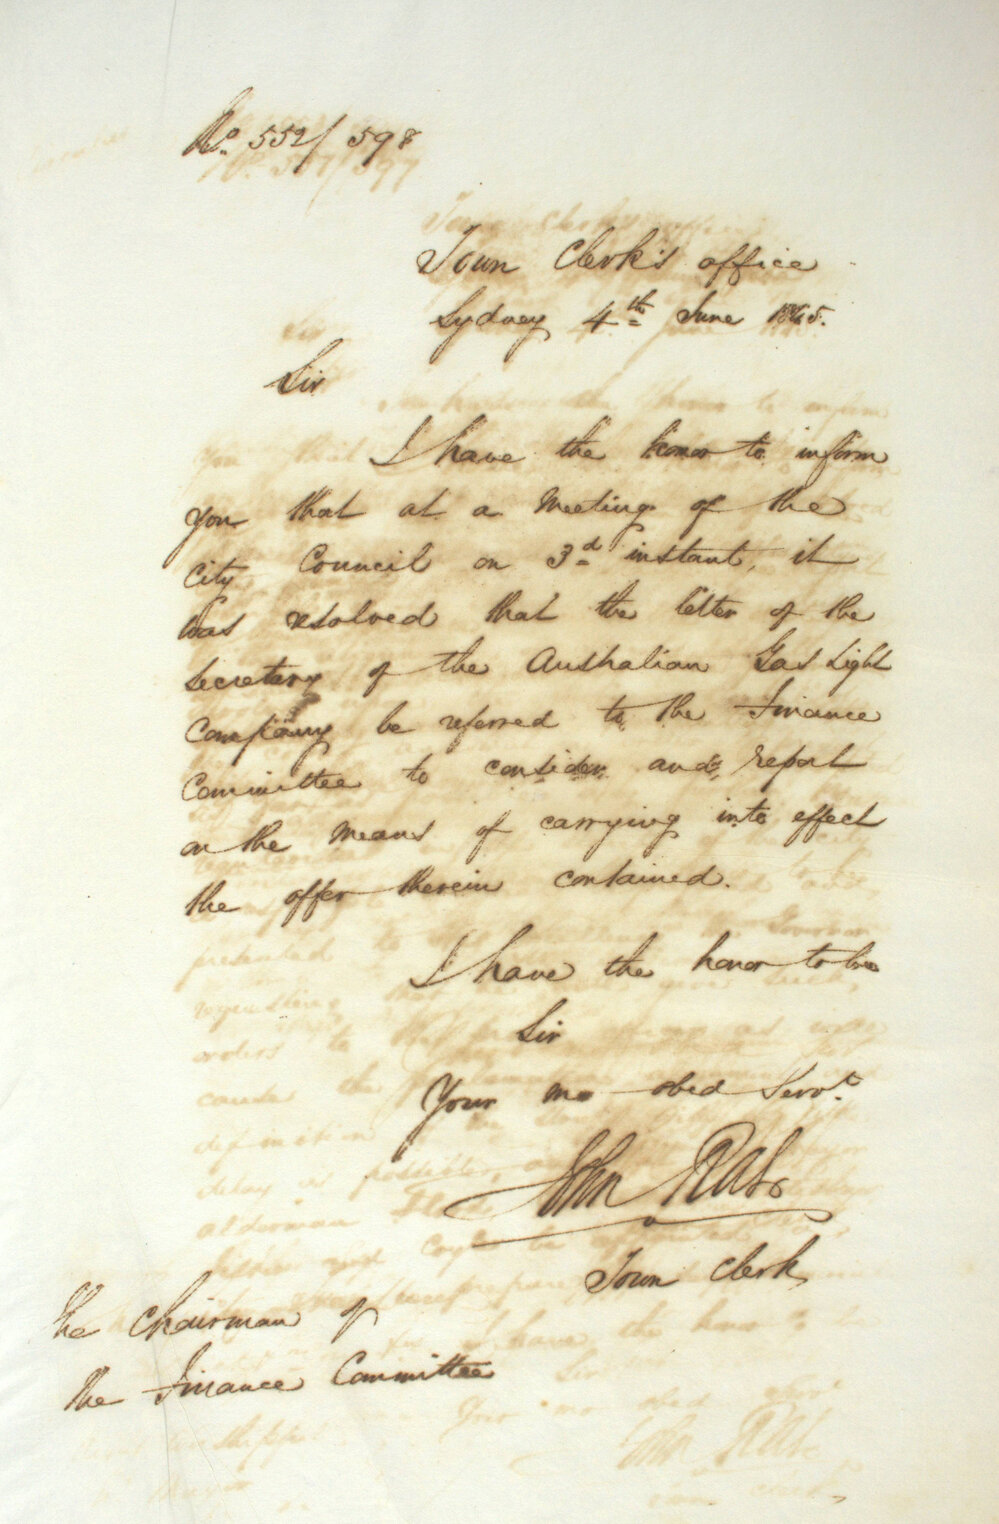 No. 552/598
Town Clerk's office
Sydney 4th June 1845.
Sir
I have the honor to inform
you that at a Meeting of the
City Council on 3d instant, it
was resolved that the letter of the
Secretary of the Australian Gas Light
Company be referred to the Finance
Committee to consider and report
on the means of carrying into effect
the offer therein contained.
I have the honor to be
Sir
Your mo obed Servt.
John Rae
Town Clerk
The Chairman of
the Finance Committee